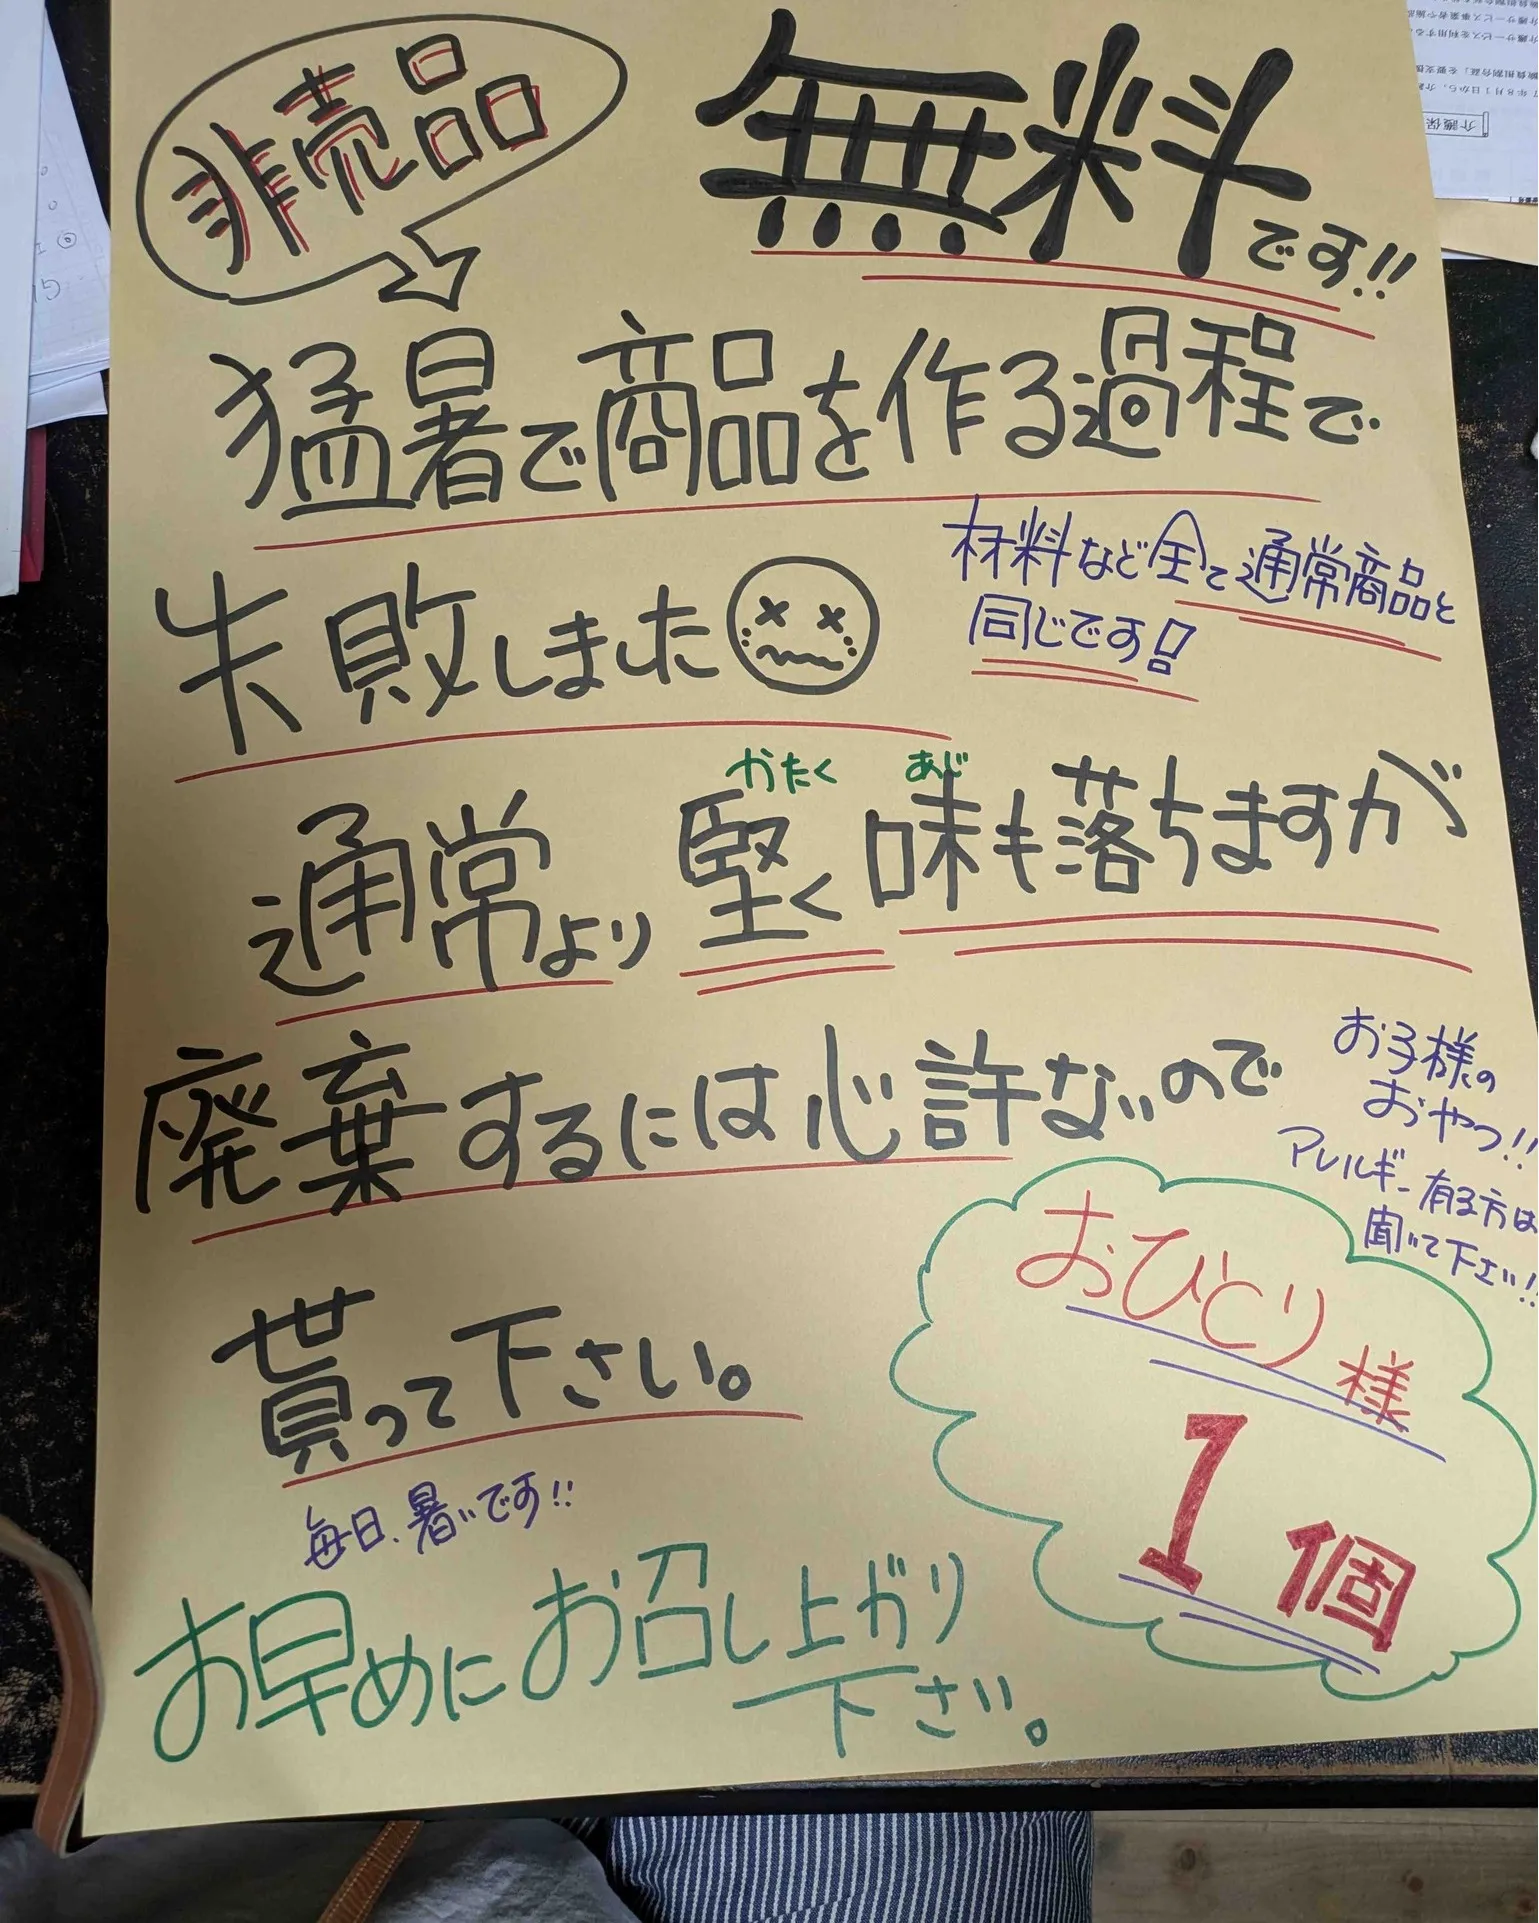 非売品
無料です!!
猛暑で商品を作る過程で
失敗しました
材料など全て通常商品と
同じです!
かたく あじ
通常より堅く味も落ちますが
廃棄するには心許ないので
お子様の
おやつ!!
アレルギー有る方は
聞いて下さい!!
貰って下さい。
おひとり様
1個
毎日、暑いです!!
お早めにお召し上がり
下さい。